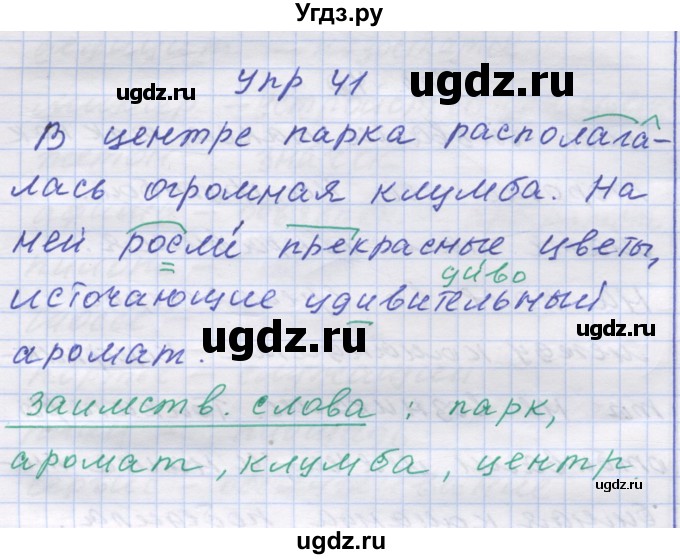 Угдз.ру
ugdz.ru
Упр 41
ugdz.ru
В центре парка располага-
лась огромная клумба. На
ней росли прекрасные цветы,
диво
источающие удивительный
ugdz.ru
ugdz.ru
аромат.
Заимств. слова: парк,
аромат, клумба, центр
ugdz.ru
ugdz.ru